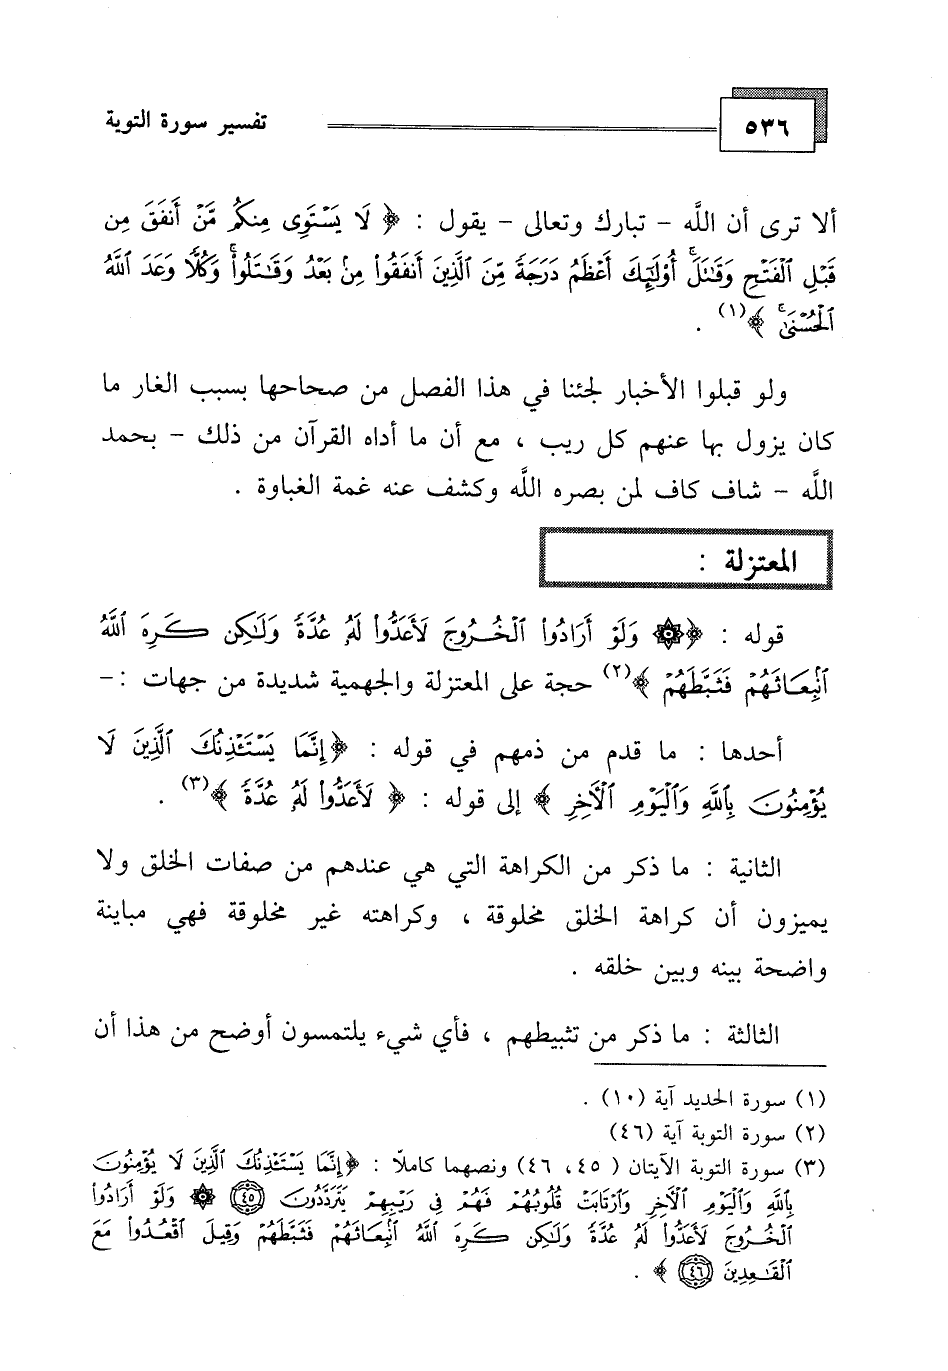 ٥٣٦
تفسير سورة التوبة
ألا ترى أن اللَّه - تبارك وتعالى - يقول : ﴿ لَا يَسْتَوِى مِنكُم مَّنْ أَنفَقَ مِن
قَبْلِ ٱلْفَتْحِ وَقَٰتَلَ ۚ أُو۟لَٰٓئِكَ أَعْظَمُ دَرَجَةً مِّنَ ٱلَّذِينَ أَنفَقُوا۟ مِنۢ بَعْدُ وَقَٰتَلُوا۟ ۚ وَكُلًّا وَعَدَ ٱللَّهُ
ٱلْحُسْنَىٰ ۚ ﴾(١) .
ولو قبلوا الأخبار لجئنا في هذا الفصل من صحاحها بسبب الغار ما
كان يزول بها عنهم كل ريب ، مع أن ما أداه القرآن من ذلك - بحمد
اللَّه - شاف كاف لمن بصره اللَّه وكشف عنه غمة الغباوة .
المعتزلة :
قوله : ﴿۞ وَلَوْ أَرَادُوا۟ ٱلْخُرُوجَ لَأَعَدُّوا۟ لَهُۥ عُدَّةً وَلَٰكِن كَرِهَ ٱللَّهُ
ٱنۢبِعَاثَهُمْ فَثَبَّطَهُمْ ﴾(٢) حجة على المعتزلة والجهمية شديدة من جهات :-
أحدها : ما قدم من ذمهم في قوله : ﴿إِنَّمَا يَسْتَـْٔذِنُكَ ٱلَّذِينَ لَا
يُؤْمِنُونَ بِٱللَّهِ وَٱلْيَوْمِ ٱلْـَٔاخِرِ ﴾ إلى قوله : ﴿ لَأَعَدُّوا۟ لَهُۥ عُدَّةً ﴾(٣) .
الثانية : ما ذكر من الكراهة التي هي عندهم من صفات الخلق ولا
يميزون أن كراهة الخلق مخلوقة ، وكراهته غير مخلوقة فهي مباينة
واضحة بينه وبين خلقه .
الثالثة : ما ذكر من تثبيطهم ، فأي شيء يلتمسون أوضح من هذا أن
(١) سورة الحديد آية (١٠) .
(٢) سورة التوبة آية (٤٦)
(٣) سورة التوبة الآيتان ( ٤٥، ٤٦) ونصهما كاملًا : ﴿إِنَّمَا يَسْتَـْٔذِنُكَ ٱلَّذِينَ لَا يُؤْمِنُونَ
بِٱللَّهِ وَٱلْيَوْمِ ٱلْـَٔاخِرِ وَٱرْتَابَتْ قُلُوبُهُمْ فَهُمْ فِى رَيْبِهِمْ يَتَرَدَّدُونَ ٤٥ ۞ وَلَوْ أَرَادُوا۟
ٱلْخُرُوجَ لَأَعَدُّوا۟ لَهُۥ عُدَّةً وَلَٰكِن كَرِهَ ٱللَّهُ ٱنۢبِعَاثَهُمْ فَثَبَّطَهُمْ وَقِيلَ ٱقْعُدُوا۟ مَعَ
ٱلْقَٰعِدِينَ ٤٦ ﴾ .